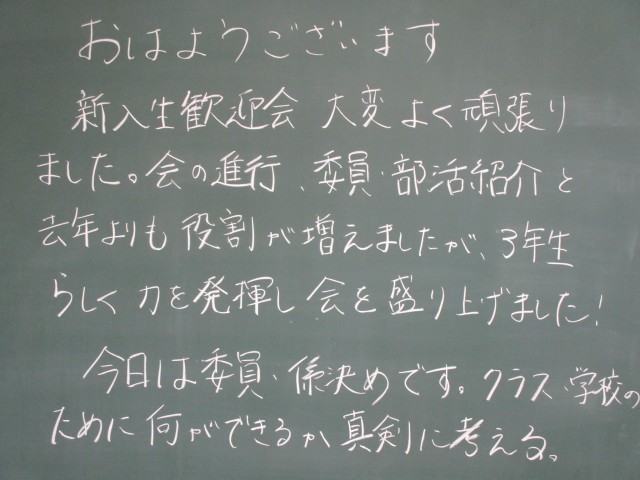 おはようございます
新入生歓迎会 大変よく頑張り
ました。会の進行、委員・部活紹介と
去年よりも役割が増えましたが、3年生
らしく力を発揮し会を盛り上げました!
今日は委員・係決めです。クラス・学校の
ために何ができるか真剣に考える。